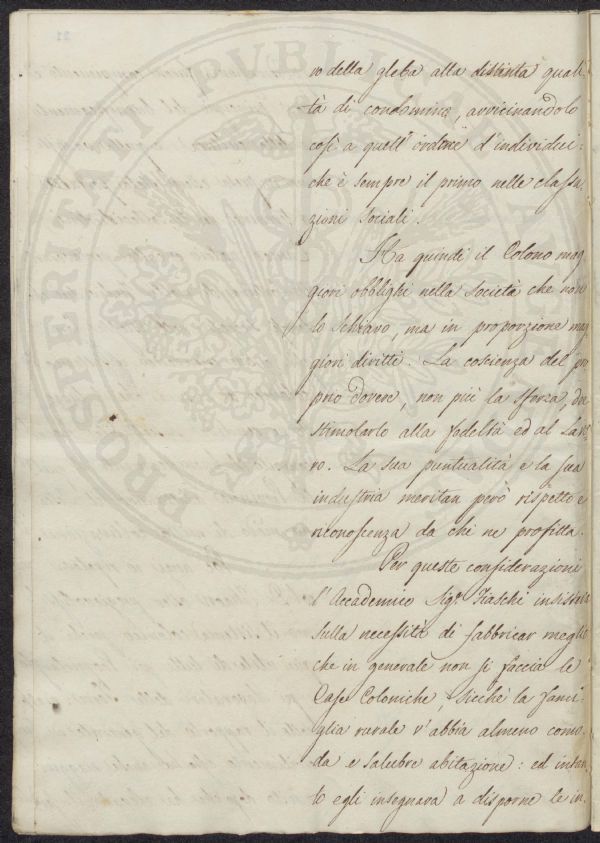 vo della gleba alla distinta quali-
tà di condomino, avvicinandolo
così a quell'ordine d'individui:
che è sempre il primo nelle classa-
zioni sociali.
Ha quindi il Colono mag
giori obblighi nella Società che non
lo schiavo, ma in proporzione mag
giori diritti. La coscienza del pro
prio dovere, non più la sforza, dee
stimolarlo alla fedeltà ed al lavo
ro. La sua puntualità e la sua
industria meritan però rispetto e
riconoscenza da chi ne profitta.
Per queste considerazioni
l'Accademico Sigr. insisteva
sulla necessità di fabbricar meglio
che in generale non si faccia le
Case Coloniche, sicchè la fami-
glia rurale v'abbia almeno como-
da e salubre abitazione: ed
egli insegnava a disporne le in-
PROSPERITATI PVBLICAE